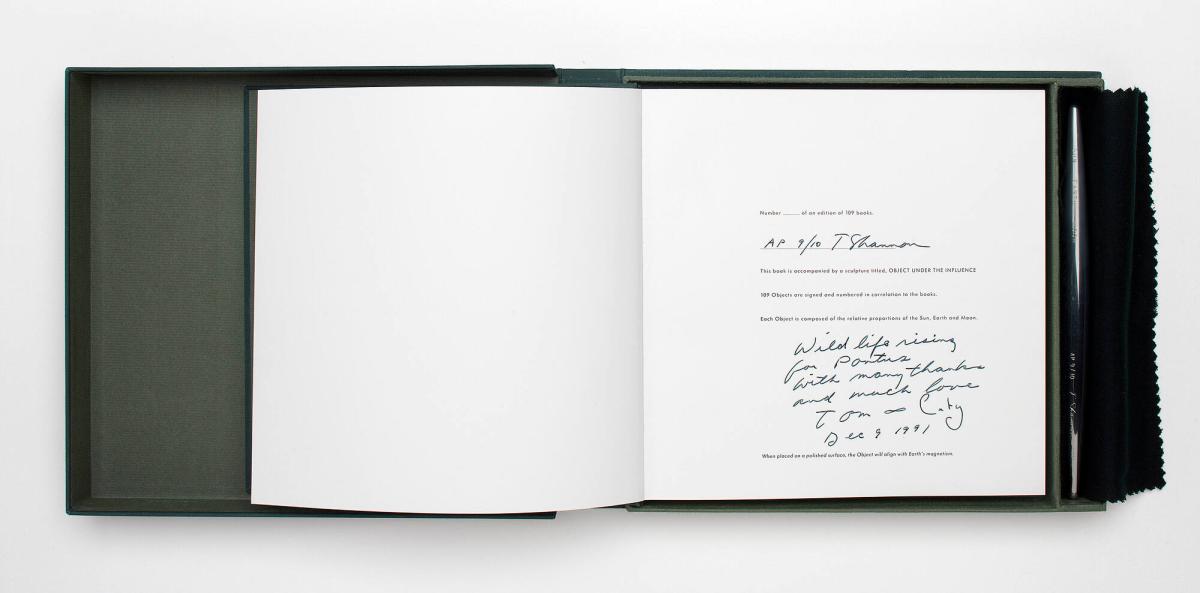 Number _____ of an edition of 189 books.
AP 9/10 T Shannon
This book is accompanied by a sculpture titled, OBJECT UNDER THE INFLUENCE
189 Objects are signed and numbered in correlation to the books.
Each Object is composed of the relative proportions of the Sun, Earth and Moon.
Wild life rising
for Pontus
with many thanks
and much love
Tom
Dec 9 1991
When placed on a polished surface, the Object will align with Earth's magnetism.
AP 9/10